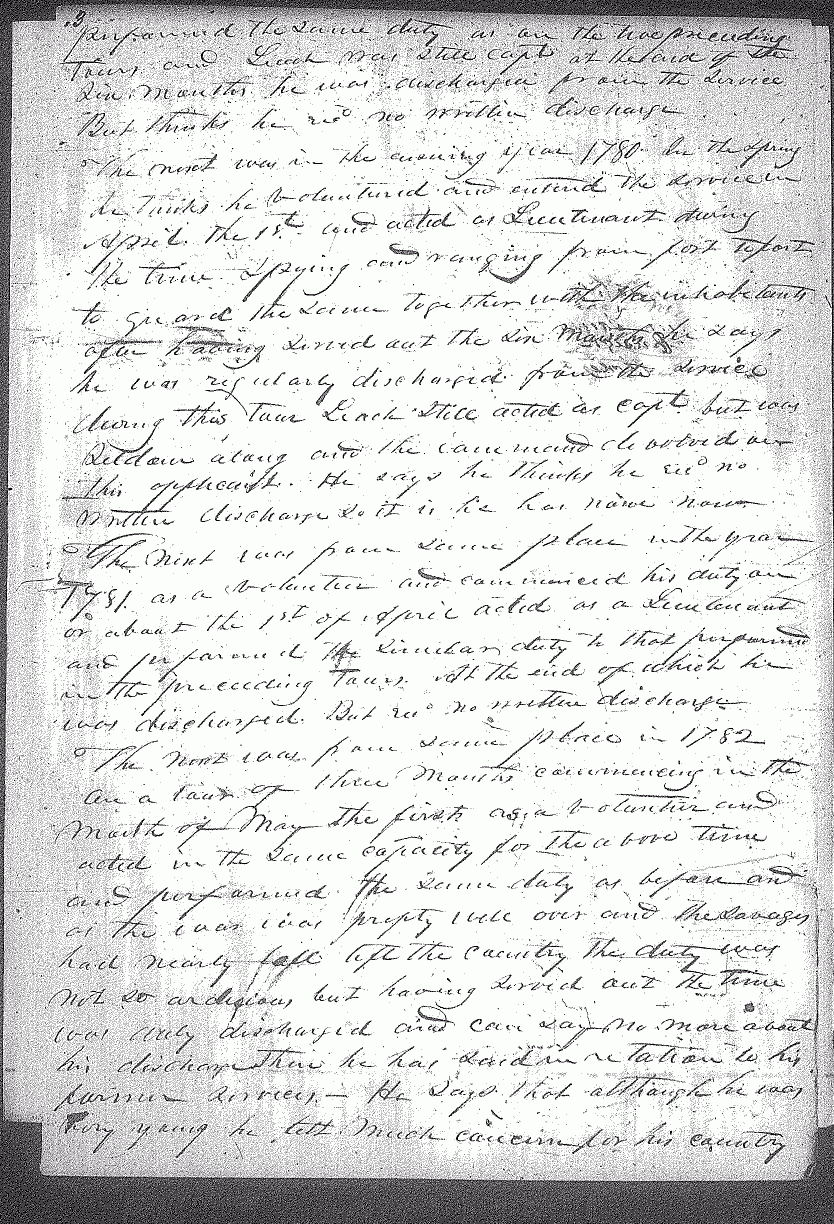 3
performed the same duty as on the two preceeding
Tours and Leach was still capt at the end of the
Six months he was discharged from the service
But thinks he recd no written discharge
The next was in the ensuing year 1780 In the spring
he thinks he volunteered and entered the service in
April the 1st and acted as Lieutenant during
the time Spying and ranging from fort to fort
to guard the same together with the inhabitants
after having served out the six Months he says
he was regularly discharged from the service
during this Tour Leach still acted as capt but was
seldom along and the command devolved on
this applicant. He says he thinks he recd no
written discharge so it is he has none now
The next was from same place in the year
1781 as a volunteer and commenced his duty on
or about the 1st of April acted as a Lieutenant
and performed the similar duty to that performed
in the preceeding Tours. At the end of which he
was discharged. But recd no written discharge
The next was from same place in 1782
on a tour of three Months commencing in the
Month of May the first as a volunteer and
acted in the same capacity for the above time
and performed the same duty as before and
as the war was prepty well over and the savages
had nearly left the country the duty was
not so ardious but having served out the time
was duly discharged and can say no more about
his discharge then he has said in relation to his
former services — He says that although he was
very young he felt much concern for his country